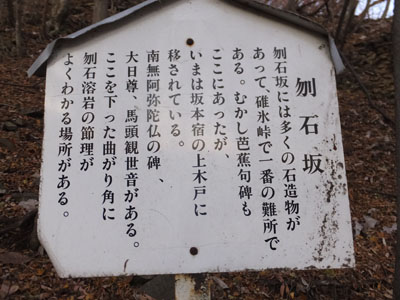 刎石坂
刎石坂には多くの石造物が
あって、碓氷峠で一番の難所で
ある。むかし芭蕉句碑も
ここにあったが、
いまは坂本宿の上木戸に
移されている。
南無阿弥陀仏の碑、
大日尊、馬頭観世音がある。
ここを下った曲がり角に
刎石溶岩の節理が
よくわかる場所がある。